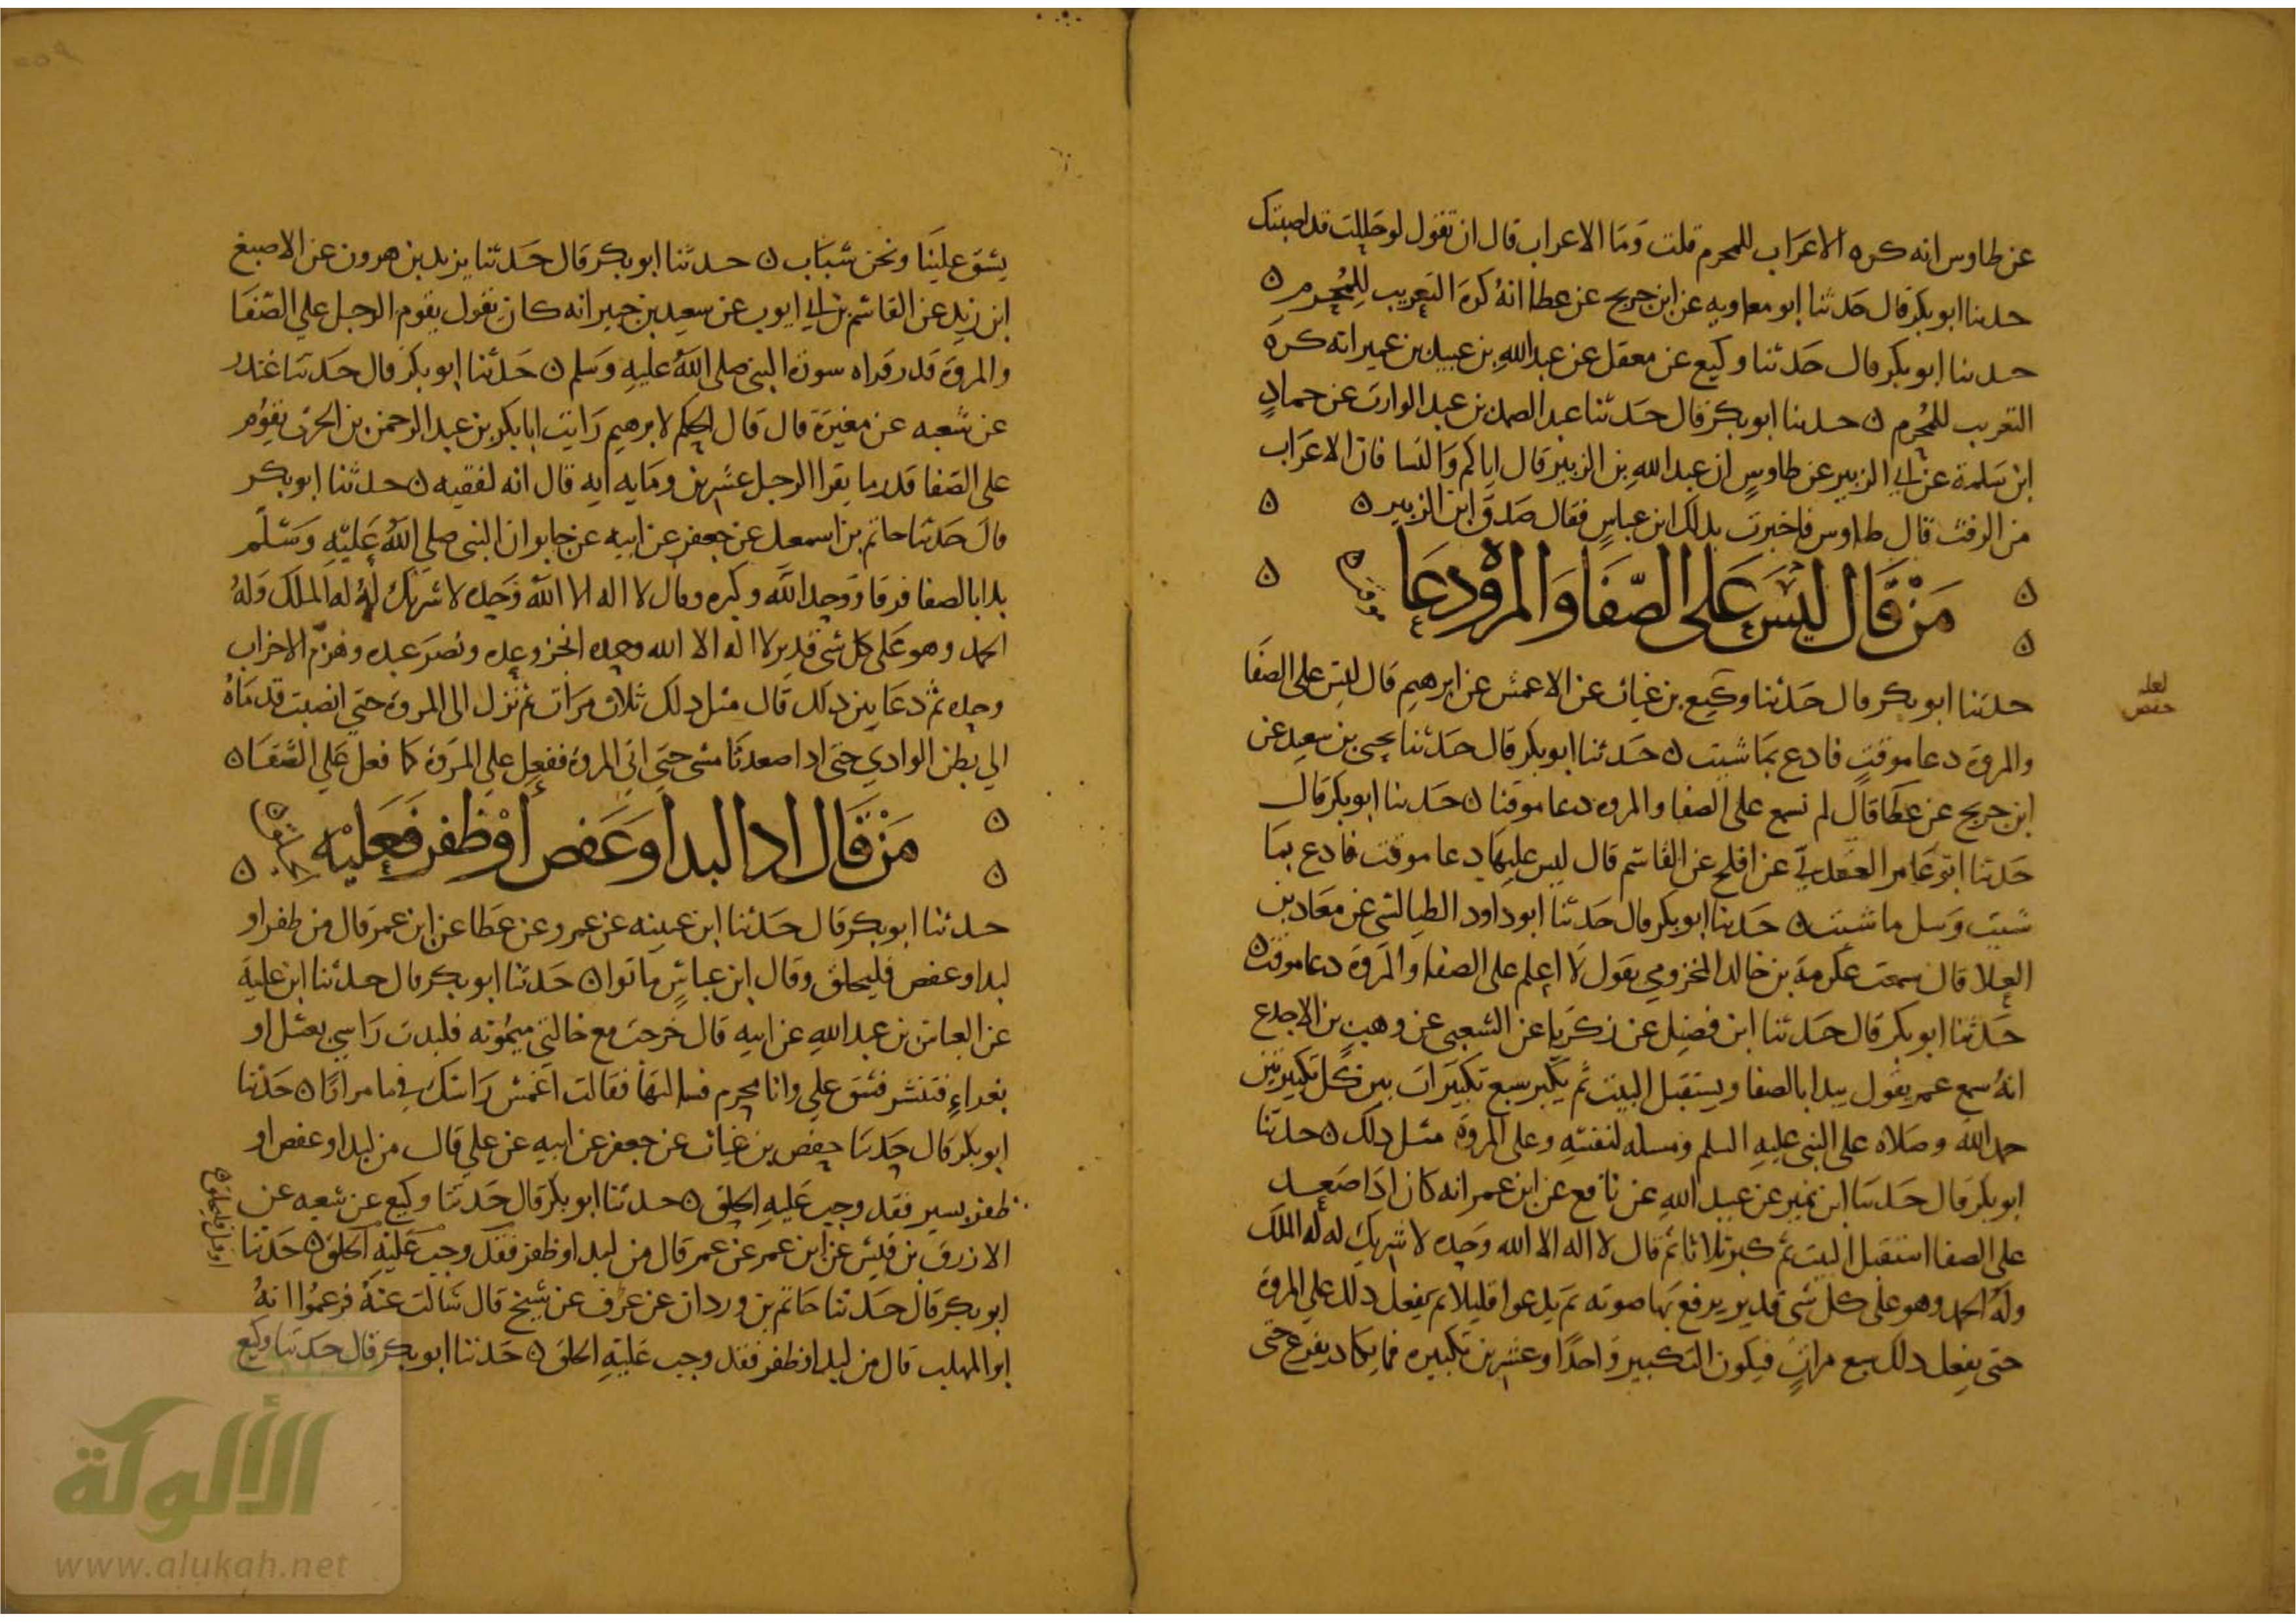 عن طاوس انه كره الاعراب للمحرم قلت وما الاعراب قال ان تقول لو حللت قد اصبتك
حدثنا ابو بكر قال حدثنا ابو معاويه عن ابن جريح عن عطا انه كره التعريب للمحرم ن
حدثنا ابو بكر قال حدثنا وكيع عن معقل عن عبد الله بن عبيد بن عمير انه كره
التعريب للمحرم ن حدثنا ابو بكر قال حدثنا عبد الصمد بن عبد الوارث عن حماد
ابن سلمة عن ابي الزبير عن طاوس ان عبد الله بن الزبير قال اياكم والنسا فان الاعراب
من الرفث قال طاوس فاخبرت بذلك ابن عباس فقال صدق ابن الزبير ن ن
ن ن من قال ليس على الصفا والمروة دعا موقت ن
حدثنا ابو بكر قال حدثنا وكيع بن غياث عن الاعمش عن ابرهيم قال ليس على الصفا
لعله
حفص
والمروة دعا موقت فادع بما شيت ن حدثنا ابو بكر قال حدثنا يحيى بن سعيد عن
ابن جريح عن عطا قال لم نسمع على الصفا والمروه دعا موقتا ن حدثنا ابو بكر قال
حدثنا ابو عامر العقدي عن افلح عن القاسم قال ليس عليها دعا موقت فادع بما
شيت وسل ما شيت ن حدثنا ابو بكر قال حدثنا ابو داود الطيالسي عن معاذ بن
العلا قال سمعت عكرمة بن خالد المخزومي يقول لا اعلم على الصفا والمروة دعا موقت ن
حدثنا ابو بكر قال حدثنا ابن فضيل عن زكريا عن الشعبي عن وهب بن الاجدع
انه سمع عمر يقول يبدا بالصفا ويستقبل البيت ثم يكبر سبع تكبيرات بين كل تكبيرتين
حمد الله وصلاه على النبي عليه السلم ومسله لنفسه وعلى المروة مثل ذلك ن حدثنا
ابو بكر قال حدثنا ابن نمير عن عبيد الله عن نافع عن ابن عمر انه كان اذا صعد
على الصفا استقبل البيت ثم كبر ثلاثا ثم قال لا اله الا الله وحده لا شريك له له الملك
وله الحمد وهو على كل شي قدير يرفع بها صوته ثم يدعوا قليلا ثم يفعل ذلك على المروة
حتى يفعل ذلك سبع مرات فيكون التكبير واحدا وعشرين تكبيره فما يكاد يفرغ حتى
يشق علينا ونحن شباب ن حدثنا ابو بكر قال حدثنا يزيد بن هرون عن الاصبغ
ابن زيد عن القاسم بن ابي ايوب عن سعيد بن جبير انه كان يقول يقوم الرجل على الصفا
والمروة قدر قراه سورة النبي صلى الله عليه وسلم ن حدثنا ابو بكر قال حدثنا غندر
عن شعبه عن مغيرة قال قال الحكم لابرهيم رايت ابا بكر بن عبد الرحمن بن الحرث يقوم
على الصفا قدر ما يقرا الرجل عشرين ومايه ايه قال انه لفقيه ن حدثنا ابو بكر
قال حدثنا حاتم بن اسمعيل عن جعفر عن ابيه عن جابر ان النبي صلى الله عليه وسلم
بدا بالصفا فرقا ووحد الله وكبره وقال لا اله الا الله وحده لا شريك له له الملك وله
الحمد وهو على كل شي قدير لا اله الا الله وحده انجز وعده ونصر عبده وهزم الاحزاب
وحده ثم دعا بين ذلك قال مثل ذلك ثلاث مرات ثم نزل الى المروة حتى انصبت قدماه
الي بطن الوادي حتى اذا صعدتا مشى حتى اتى المروة ففعل على المروة كما فعل على الصفا ن
ن ن من قال اذا لبد او عقص او ظفر فعليه الحلق ن
حدثنا ابو بكر قال حدثنا ابن عيينه عن عمرو عن عطا عن ابن عمر قال من ظفر او
لبد او عقص فليحلق وقال ابن عباس ما نوا ن حدثنا ابو بكر قال حدثنا ابن علية
عن العباس بن عبد الله عن ابيه قال خرجت مع خالتي ميمونه فلبدت راسي بعسل او
بغراء فتنشر فشق علي وانا محرم فسالتها فقالت اغمس راسك في ما مرارا ن حدثنا
ابو بكر قال حدثنا حفص بن غياث عن جعفر عن ابيه عن علي قال من لبد او عقص او
ظفر بسير فقد وجب عليه الحلق ن حدثنا ابو بكر قال حدثنا وكيع عن شعبه عن
الازرق بن قيس عن ابن عمر عن عمر قال من لبد او ظفر فقد وجب عليه الحلق ن حدثنا
ابو بكر قال حدثنا حاتم بن وردان عن عوف عن شيخ قال سالت عنه فزعموا انه
ابو المهلب قال من لبد او ظفر فقد وجب عليه الحلق ن حدثنا ابو بكر قال حدثنا وكيع
الألوكة
www.alukah.net